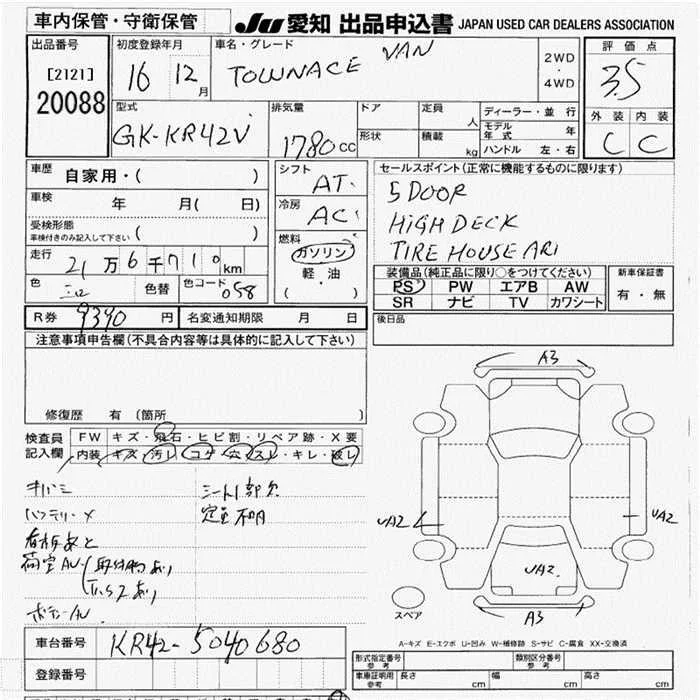 車内保管・守衛保管
JU 愛知 出品申込書 JAPAN USED CAR DEALERS ASSOCIATION
出品番号
[2121]
20088
初度登録年月
16 12月
車名・グレード
TOWNACE VAN
2WD
・
4WD
評価点
3.5
外装 内装
C C
型式
GK-KR42V
排気量
1780cc
ドア
形状
定員 人
積載 kg
ディーラー・並行
モデル年式 年
ハンドル 左・右
車歴 自家用・( )
車検 年 月( 日)
受検形態
車検付きのみ記入して下さい ( )
走行 21万6千710km
色 シロ 色替 色コード 058
R券 9390円 名変通知期限 月 日
シフト AT
冷房 AC
燃料
ガソリン
軽・油
( )
セールスポイント(正常に機能するものに限ります)
5DOOR
HIGH DECK
TIRE HOUSE ARI
装備品(純正品に限り○をつけてください)
PS PW エアB AW
SR ナビ TV カワシート
新車保証書
有・無
後日品
注意事項申告欄(不具合内容等は具体的に記入して下さい)
修復歴 有 (箇所 )
検査員
記入欄
FW キズ・飛石・ヒビ割・リペア跡・X要
内装 キズ・汚レ・コゲ・穴・スレ・キレ・破レ
キバミ
シート1部欠
バッテリーメ
定員不明
看板あと
荷室AU
取付物あり
ボデーAU
A3
UA2
UA2
UA2
A3
スペア
A-キズ E-エクボ U-凹み W-補修跡 S-サビ C-腐食 XX-交換済
車台番号 KR42-5040680
登録番号
形式指定番号
参考
類別区分番号
参考
車庫証明用
参考
長さ cm 幅 cm 高さ cm